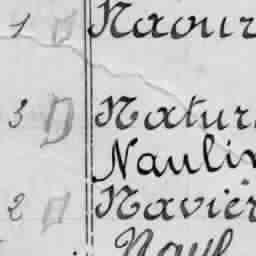 1 D Naour
3 D Natur
Naulin
2 D Navier
Nayl